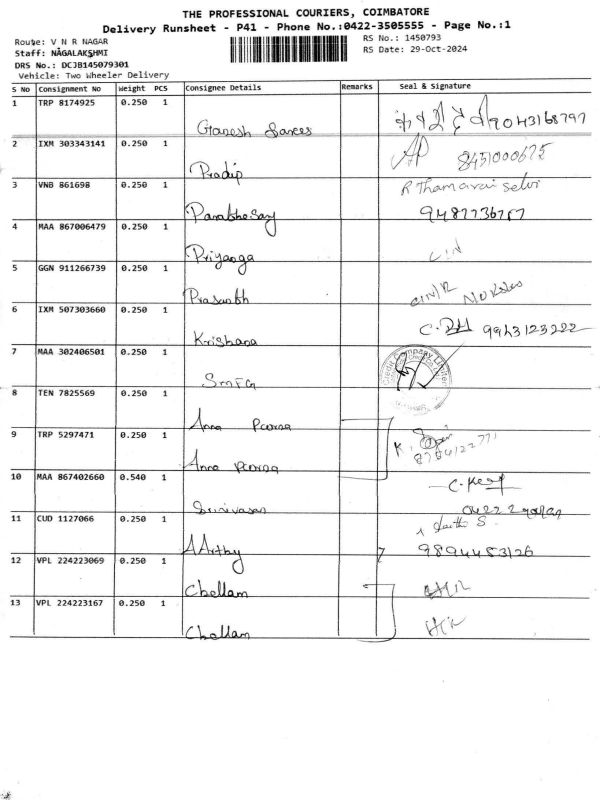 THE PROFESSIONAL COURIERS, COIMBATORE
Delivery Runsheet - P41 - Phone No.:0422-3505555 - Page No.:1
Route: V N R NAGAR
RS No.: 1450793
Staff: NAGALAKSHMI
RS Date: 29-Oct-2024
DRS No.: DCJB145079301
Vehicle: Two Wheeler Delivery
S No Consignment No Weight PCS Consignee Details Remarks Seal & Signature
1 TRP 8174925 0.250 1
Ganesh Sarees 9043168797
2 IXM 303343141 0.250 1
Pradip 8451000675
3 VNB 861698 0.250 1 R Thamarai Selvi
4 MAA 867006479 0.250 1
Priyanga
5 GGN 911266739 0.250 1
Prasanth
6 IXM 507303660 0.250 1
Krishana 9943123222
7 MAA 302406501 0.250 1
Credit Company Limited
8 TEN 7825569 0.250 1
Anna
9 TRP 5297471 0.250 1
Anna
10 MAA 867402660 0.540 1
Srinivasan
11 CUD 1127066 0.250 1
AArthy 9894483126
12 VPL 224223069 0.250 1
Chellam
13 VPL 224223167 0.250 1
Chellam